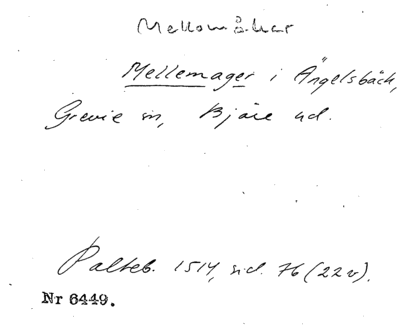 Mellomåkar
Mellemager i Ängelsbäck,
Grevie sn, Bjäre hd.
Palteb. 1514, sid. 76 (22 v).
Nr 6449.